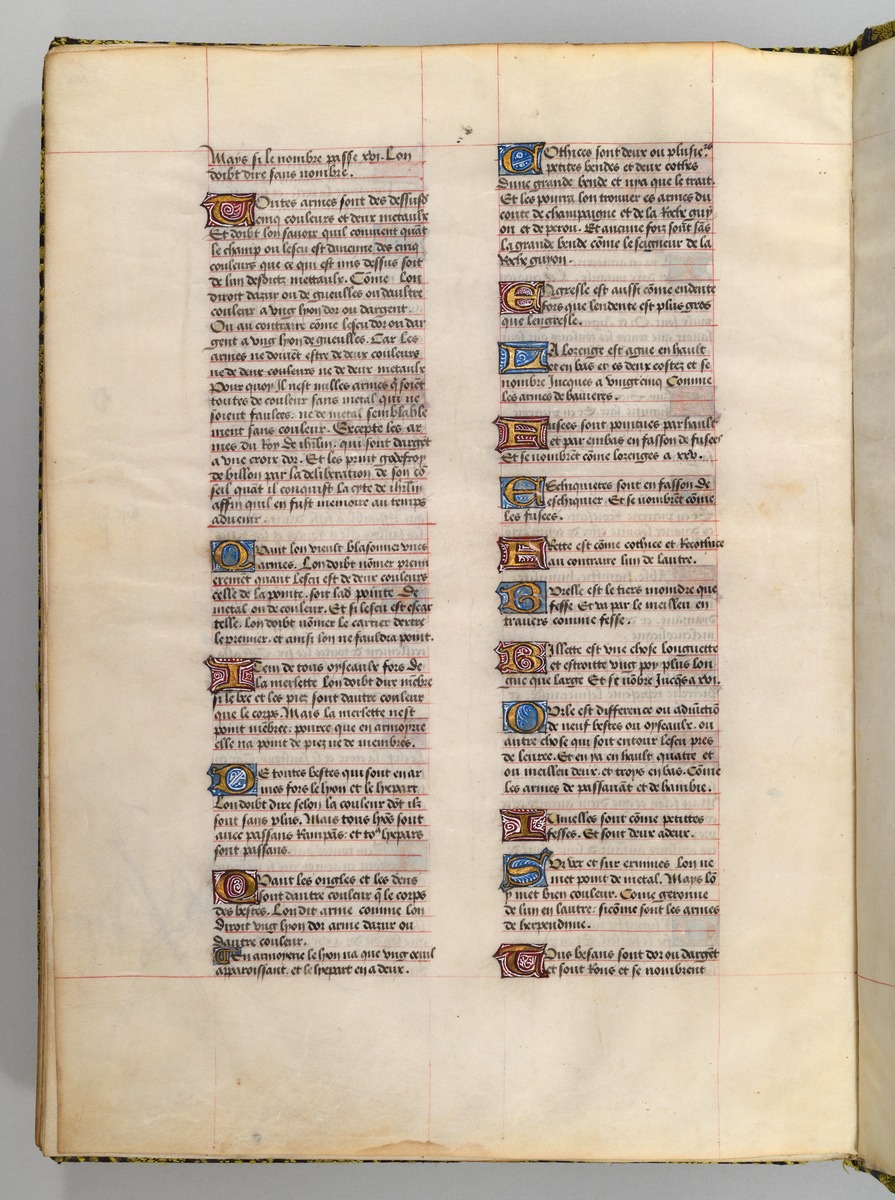 Mays si le nombre passe xvi. Lon
doibt dire sans nombre.
Toutes armes sont des dessusd'
cinq couleurs et deux metaulx
Et doibt lon sauoir quil conuient quāt
le champ ou lescu est daucune des cinq
couleurs que ce qui est mis dessus soit
de lun desditz mettaulx. Cōme lon
diroit dazur ou de gueulles ou daultre
couleur a vng lyon dor ou dargent.
Ou au contraire cōme lescu dor ou dar
gent a vng lyon de gueulles. Car les
armes ne doiuēt estre de deux couleurs
ne de deux couleurs ne de deux metaulx
Pour quoy il nest nulles armes q̄ soiēt
toutes de couleur sans metal qui ne
soient faulces: ne de metal semblable
ment sans couleur. Excepte les ar
mes du Roy de ihrlm: qui sont dargēt
a vne croix dor. Et les print godefroy
de billon par la deliberation de son cō
seil quāt il conquist la cyte de ihrlm
affin quil en fust memoire au temps
aduenir.
Quant lon vieult blasonner vnes
armes. Lon doibt nōmer premi
erement quant lescu est de deux couleurs
celle de la pointe. soit lad pointe de
metal ou de couleur. Et si lescu est escar
telle. lon doibt nōmer le cartier dextre
le premier. et ainsi lon ne fauldra point.
Item de tous oyseaulx fors de
la merlette lon doibt dire mēbre
si le bec et les piez sont dautre couleur
que le corps. Mais la merlette nest
point mēbree: pource que en armoyrie
elle na point de piez ne de membres.
De toutes bestes qui sont en ar
mes fors le lyon et le lyepart
Lon doibt dire selon la couleur dōt ilz
sont sans plus. Mais tous lyōs sont
auec passans Rampās: et to⁹ lyepars
sont passans.
Quant les ongles et les dens
sont dautre couleur q̄ le corps
des bestes. Lon dit arme comme lon
diroit vng lyon dor arme dazur ou
dautre couleur.
En armoyerie le lyon na que vng oeuil
apparoissant. et le lyepart en a deux.
Cothices sont deux ou plusie²s
petites bendes et deux cothes
dune grande bende et nya que le trait.
Et les pourra lon trouuer es armes du
conte de champaigne et de la Roche guy
on et de peron. Et aucune fois sont sās
la grande bende cōme le seigneur de la
Roche guyon.
Egresle est aussi cōme endente
fors que lendente est plus gros
que lengresle.
La lozenge est ague en hault
et en bas et es deux costez et se
nombre Iucques a vingtcinq Comme
les armes de bauieres.
Fusees sont pointues par hault
et par embas en fasson de fusees
Et se nombrēt cōme lozenges a xxv.
Eschiquetes sont en fasson de
eschiquier. Et se nombrēt cōme
les fusees.
Frette est cōme cothice et Recothice
au contraire lun de lautre.
Burelle est le tiers moindre que
fesse. Et va par le meillieu en
trauers comme fesse.
Billette est vne chose longuette
et estroitte vng poy plus lon
gue que large Et se nōbre Iucqs a xvi.
Orle est difference ou adiūctiō
de neuf bestes ou oyseaulx. ou
autre chose qui soit entour lescu pres
de leuree. Et en ya en hault quatre et
ou meillieu deux. et troys en bas. Cōme
les armes de passauāt et de bambie.
Iumelles sont cōme petittes
fesses. Et sont deux a deux.
Sur ver et sur ermines lon ne
met point de metal. Mays lō
y met bien couleur. Come geronne
de lun en lautre: sicōme sont les armes
de herpendinne.
Tous besans sont dor ou dargēt
et sont Rons et se nombrent